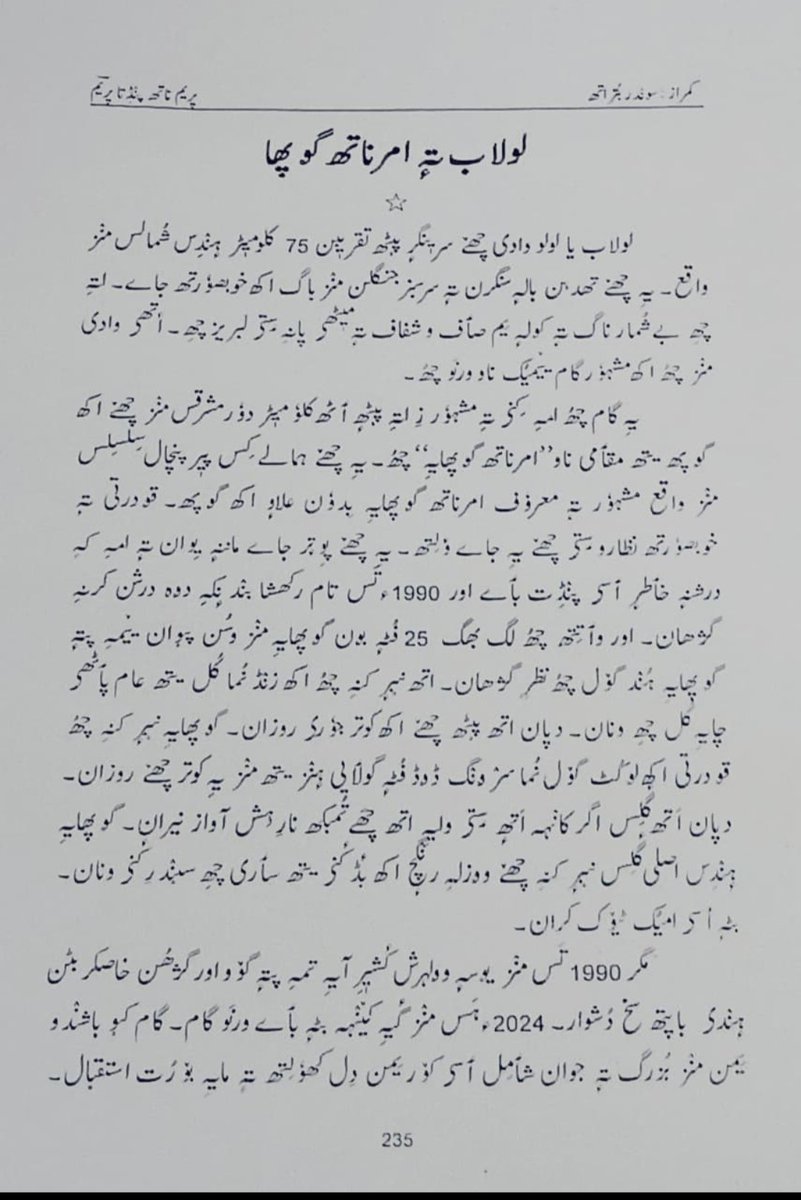 کمراز: سوٚندر بُتراتھ
پریم ناتھ پنڈتا پریٚم
لولاب تہٕ امرناتھ گوپھا
☆
لولاب یا لولو وادی چھنے سرینگرٕ پیٹھ تقریبن 75 کلومیٖٹر ہِنٛدِس شُمالس منٛز
واقع۔ یہِ چھنے تھدٮ۪ن بالہٕ سنگرن تہٕ سرسبز جنگلن منٛز باگ اکھ خوبصوٗرتھ جاے۔ اتہِ
چھِ بےشُمار ناگ تہٕ کولہٕ یم صاف و شفاف تہٕ میٹھی پانہٕ سٟتی لبریز چھِ۔ أتھی وادی
منٛز چھُ اکھ مشہوٗر گام ییٚمیُک ناو ورنَو چھُ۔
یہِ گام چھُ امہِ کِنی تہٕ مشہوٗر زِ اتہِ پیٹھٕ أٹھ کلوٗمیٖٹر دوٗر مشرقس منٛز چھنے اکھ
گوپھ یتھ مقٲمی ناو ”امرناتھ گوپھایہِ“ چھُ۔ یہِ چھنے ہمالے کِس پیٖرپنچال سِلسِلس
منٛز واقع مشہوٗر تہٕ معروٗف امرناتھ گوپھایہِ بدوٗن علاوٕ اکھ گوپھ۔ قودرتی تہٕ
خوبصوٗرتھ نظارو سٟتی چھنے یہِ جاے ؤلتھ۔ یہِ چھنے پوِتر جاے ماننہٕ یِوان تہٕ امہِ کہِ
درشنہٕ خٲطرٕ أسی پنڈِت بٲے اور 1990ء تَس تام رکھشا بندنکہِ دوہ درشن کرنہِ
گژھان۔ اور وٲتِتھ چھُ لگ بھگ 25 فُٹہٕ بون گوپھایہِ منٛز وسُن پیوان ییٚمہِ پتہٕ
گوپھایہِ ہُنٛد گوٚل چھُ نظرِ گژھان۔ اتھ نیبرٕ کنہِ چھُ اکھ زنڈ نُما کُل یتھ عام پٲٹھی
چایہِ کُل چھِ ونان۔ دپان اتھ پیٹھ چھنے اکھ کوتر جوٗری روزان۔ گوپھایہِ نیبرٕ کنہِ چھُ
قودرتی اکھ لوکُٹ گوٚل نُما سۯونٛگ ڈۄڈ فُٹہٕ گولٲیی ہنٛز یتھ منٛز یہِ کوتر چھنے روزان۔
دپان أتھی گلِس اگر کانہہ أتھہٕ سٟتی ولیہِ اتھ چھے تُمبکھ نارِ ہِش آواز نیران۔ گوپھایہِ
ہِنٛدِس اصلی گلِس نیبرٕ کنہِ چھنے وۄزلہِ رنگچ اکھ بٔڈ کٔنی یتھ سٲری چھِ سیندرٕ کٔنی ونان۔
بٹہٕ أسی امیُک ٹیوٚک کران۔
مگر 1990 تَس منٛز یوسہٕ وولہرِش کٔشیٖرِ آیہِ تمہِ پتہٕ گوٚو اور گژھُن خاصکر بٹن
ہنٛدی باپتھ سخ دُشوار۔ 2024ء ہَس منٛز گیہِ کیٚنہہ بٹہٕ بٲے ورنَو گام۔ گام کیو باشندو
یمن منٛز بُزرگ تہٕ جوان شٲمِل أسی کوٚر یمن دِل کھولِتھ تہٕ مایہِ بوٚرُت استقبال۔
235